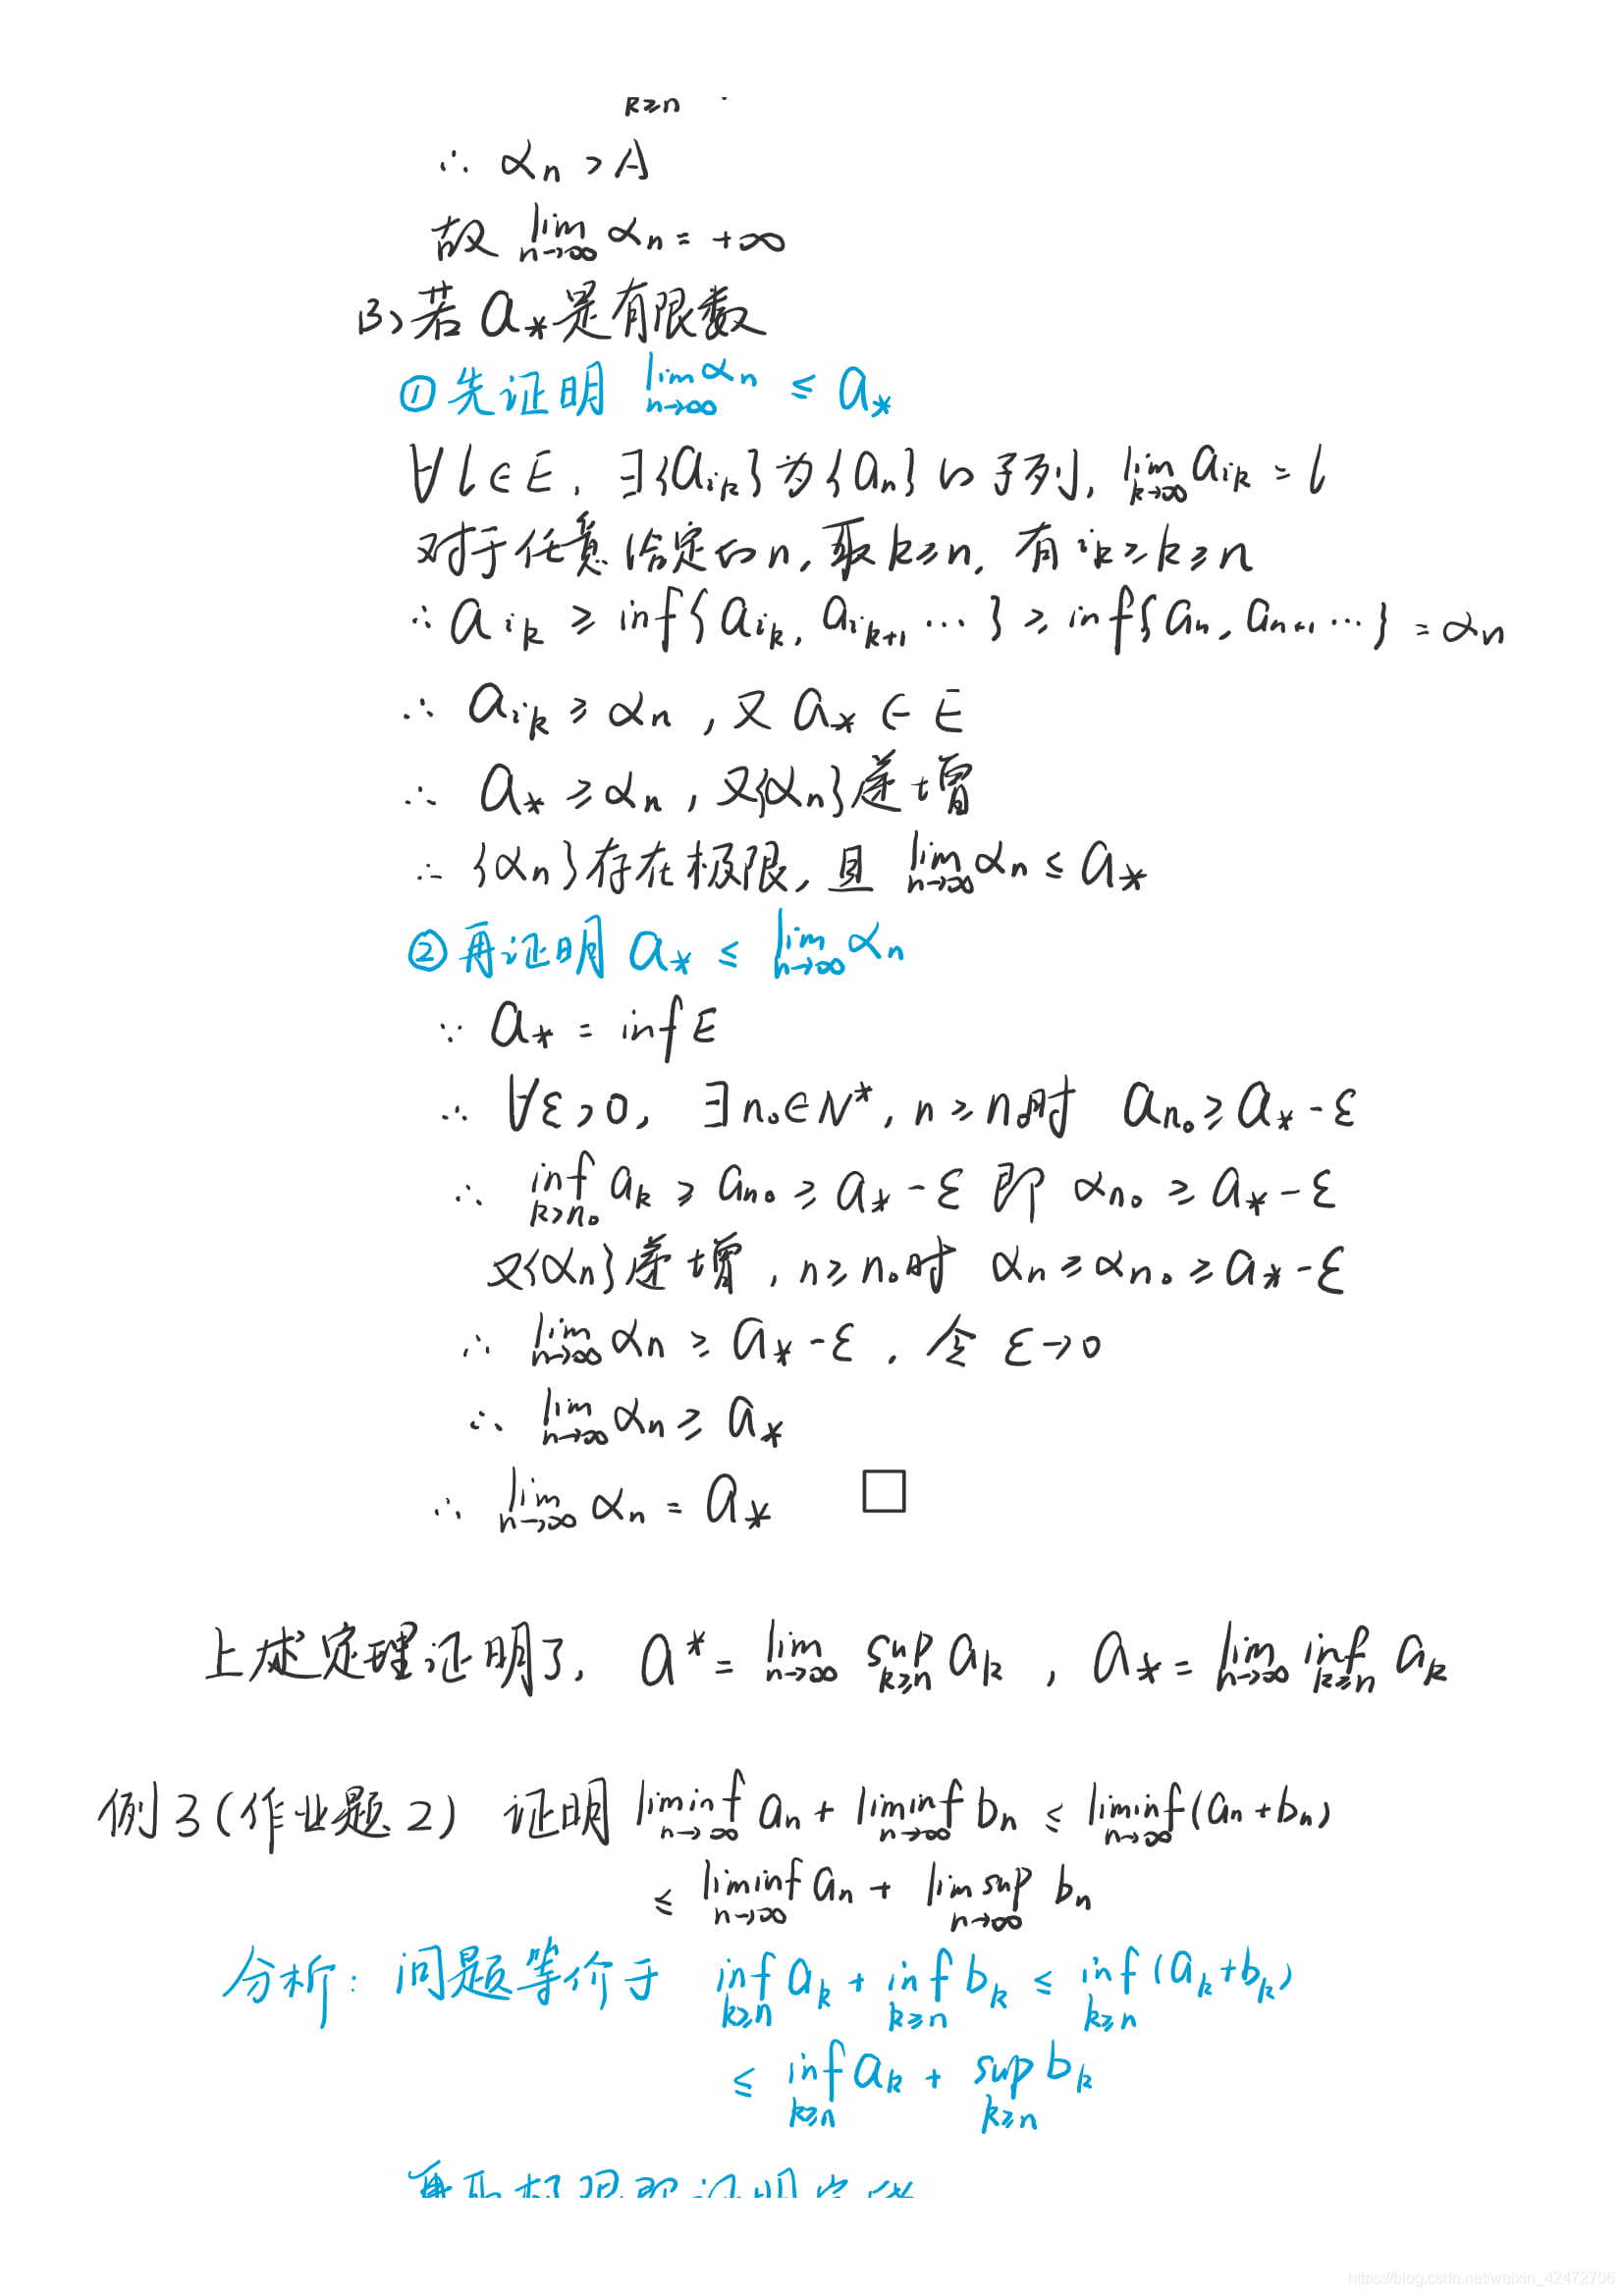 k≥n
∴ αn > A
故 lim n→∞ αn = +∞
(3) 若 a* 是有限数
① 先证明 lim n→∞ αn ≤ a*
∀ l ∈ E, ∃{a_{ik}}为{an}的子列, lim k→∞ a_{ik} = l
对于任意给定的n, 取k≥n, 有 ik≥k≥n
∴ a_{ik} ≥ inf{a_{ik}, a_{ik+1} ⋯} ≥ inf{an, an+1 ⋯} = αn
∴ a_{ik} ≥ αn, 又 a* ∈ E
∴ a* ≥ αn, 又{αn}递增
∴ {αn}存在极限, 且 lim n→∞ αn ≤ a*
② 再证明 a* ≤ lim n→∞ αn
∵ a* = inf E
∴ ∀ε>0, ∃n₀∈N*, n≥n₀时 a_{n₀} ≥ a* - ε
∴ inf k≥n₀ ak ≥ a_{n₀} ≥ a* - ε 即 α_{n₀} ≥ a* - ε
又{αn}递增, n≥n₀时 αn ≥ α_{n₀} ≥ a* - ε
∴ lim n→∞ αn ≥ a* - ε, 令 ε→0
∴ lim n→∞ αn ≥ a*
∴ lim n→∞ αn = a* □
上述定理证明了, a^* = lim n→∞ sup k≥n ak, a_* = lim n→∞ inf k≥n ak
例3(作业题2) 证明 liminf n→∞ an + liminf n→∞ bn ≤ liminf n→∞ (an+bn)
≤ liminf n→∞ an + limsup n→∞ bn
分析: 问题等价于 inf k≥n ak + inf k≥n bk ≤ inf k≥n (ak+bk)
≤ inf k≥n ak + sup k≥n bk
https://blog.csdn.net/weixin_42472706